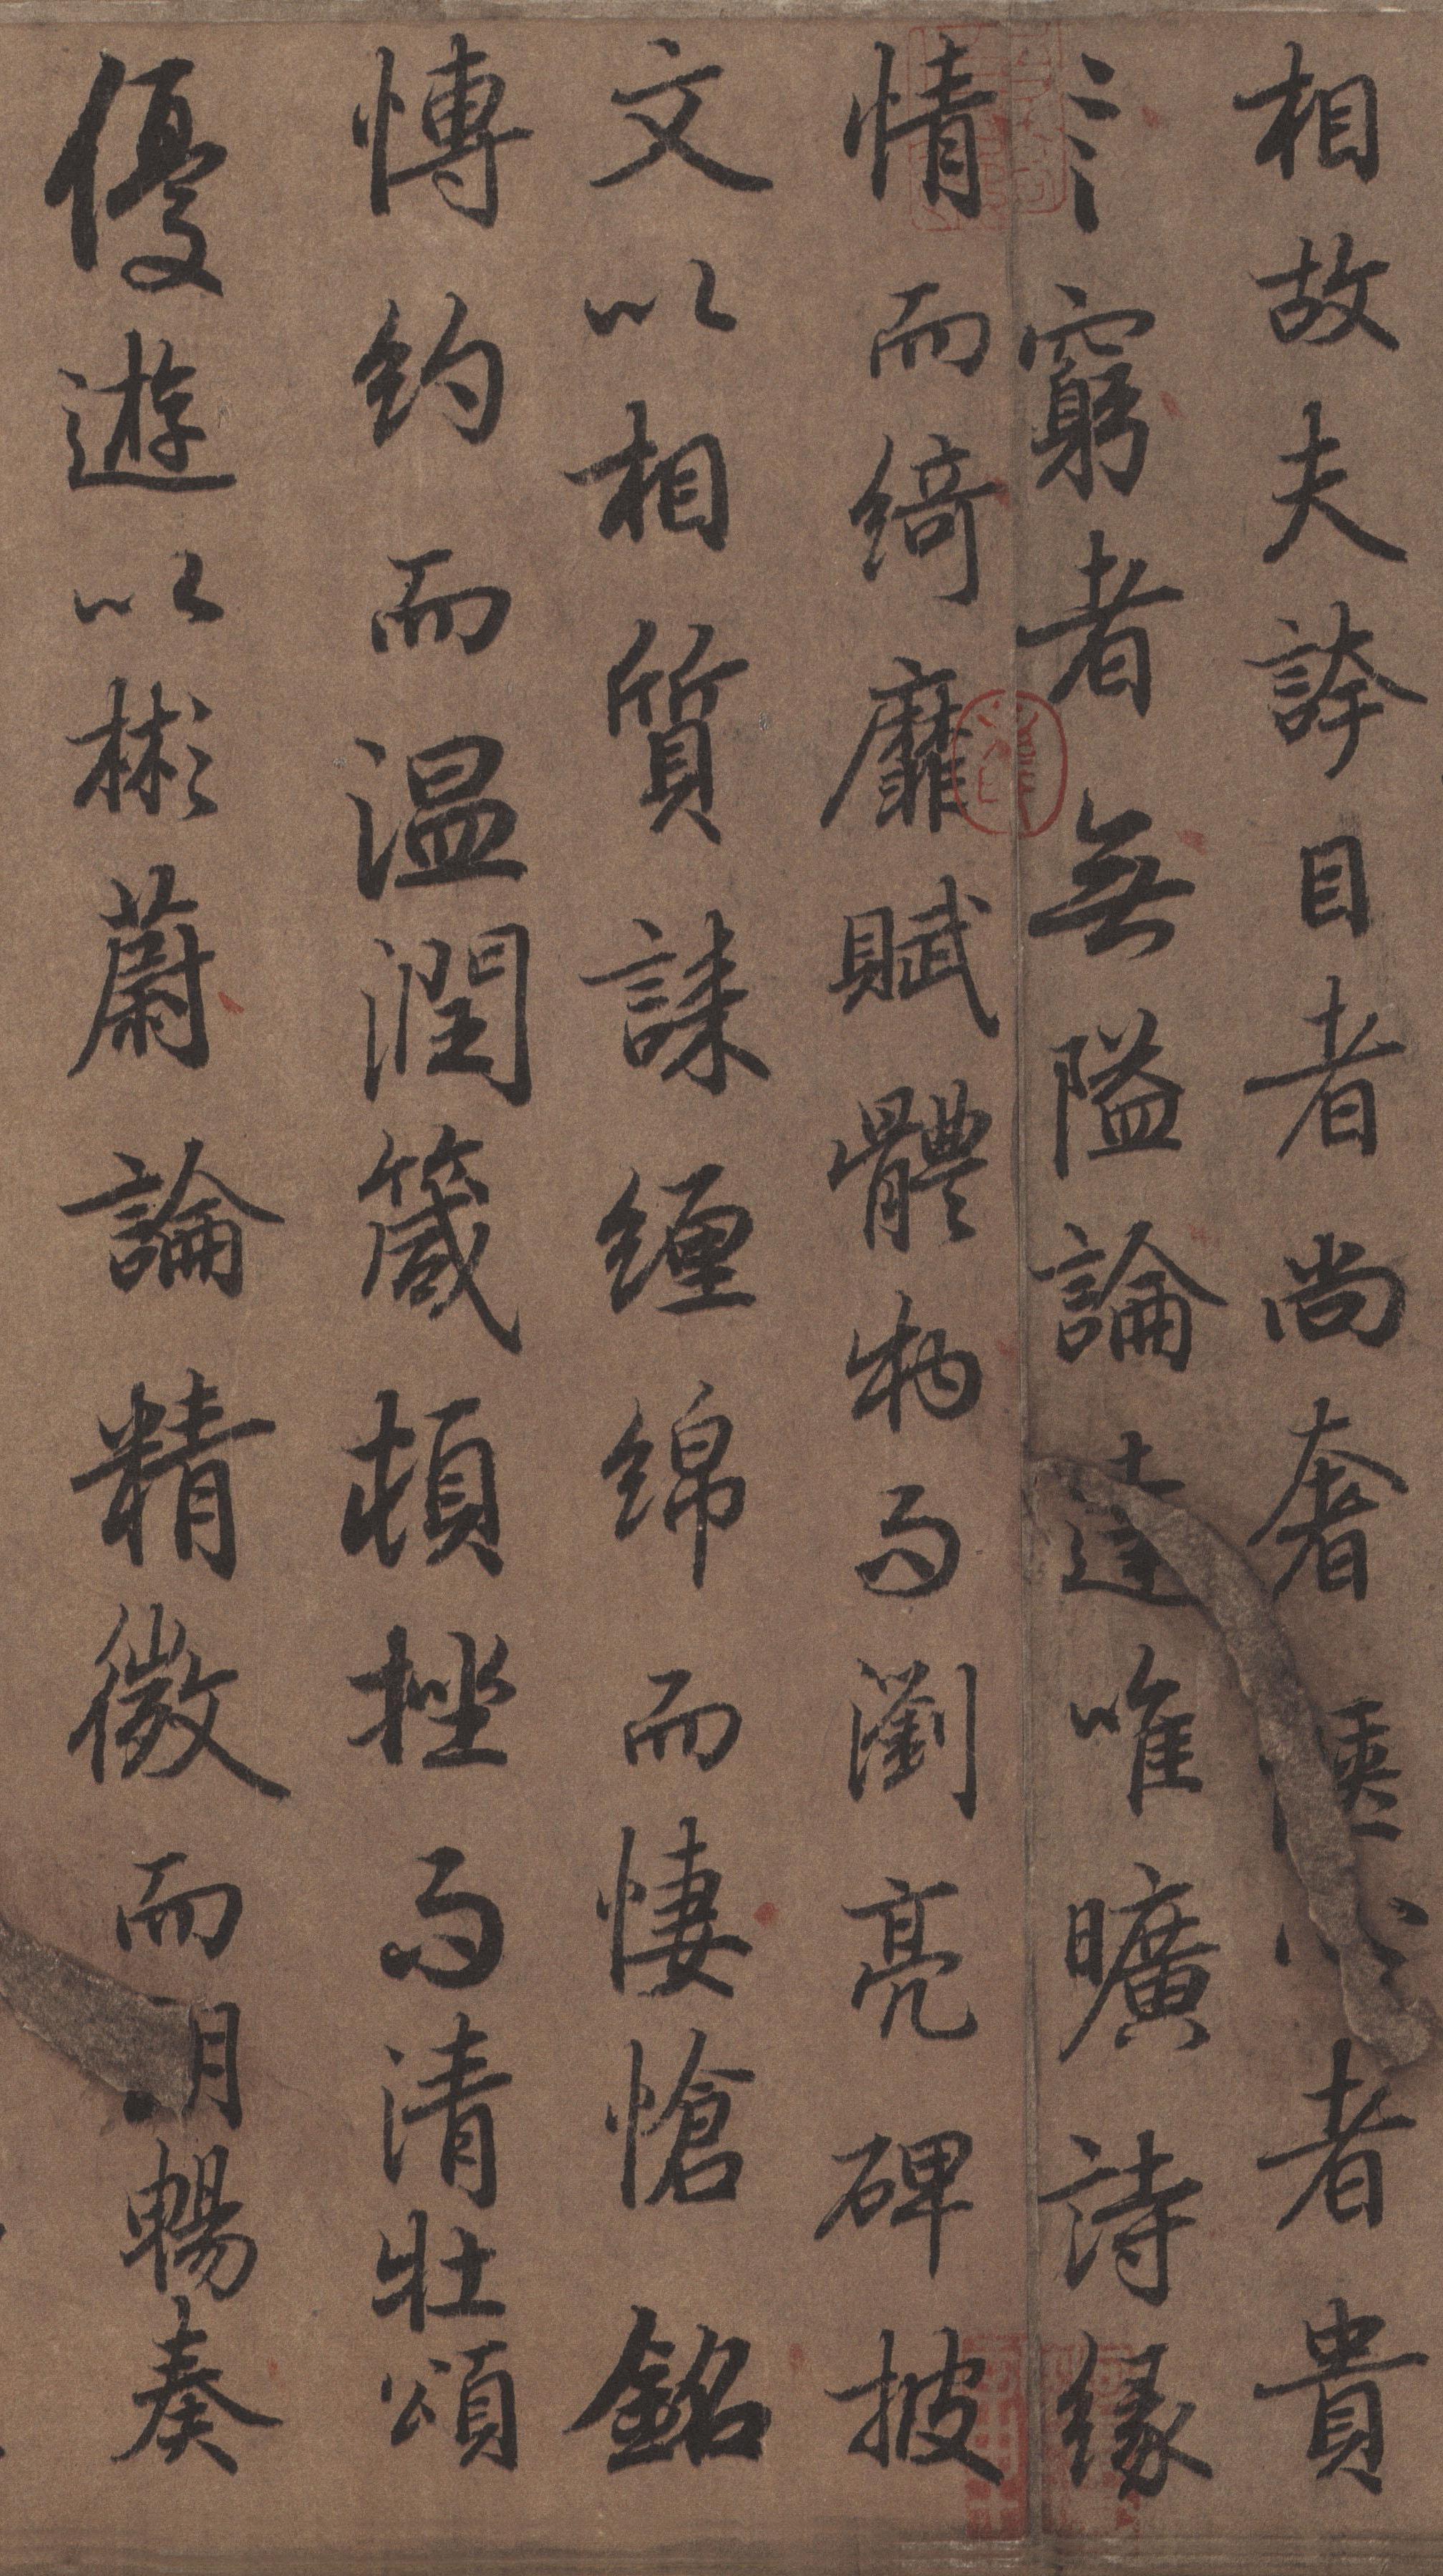 相故夫誇目者尚奢愜心者貴
窮者無隘論達唯曠詩緣
情而綺靡賦體物而瀏亮碑披
文以相質誄纏綿而悽愴銘
愽約而温潤箴頓挫而清壯頌
優遊以彬蔚論精微而朗暢奏